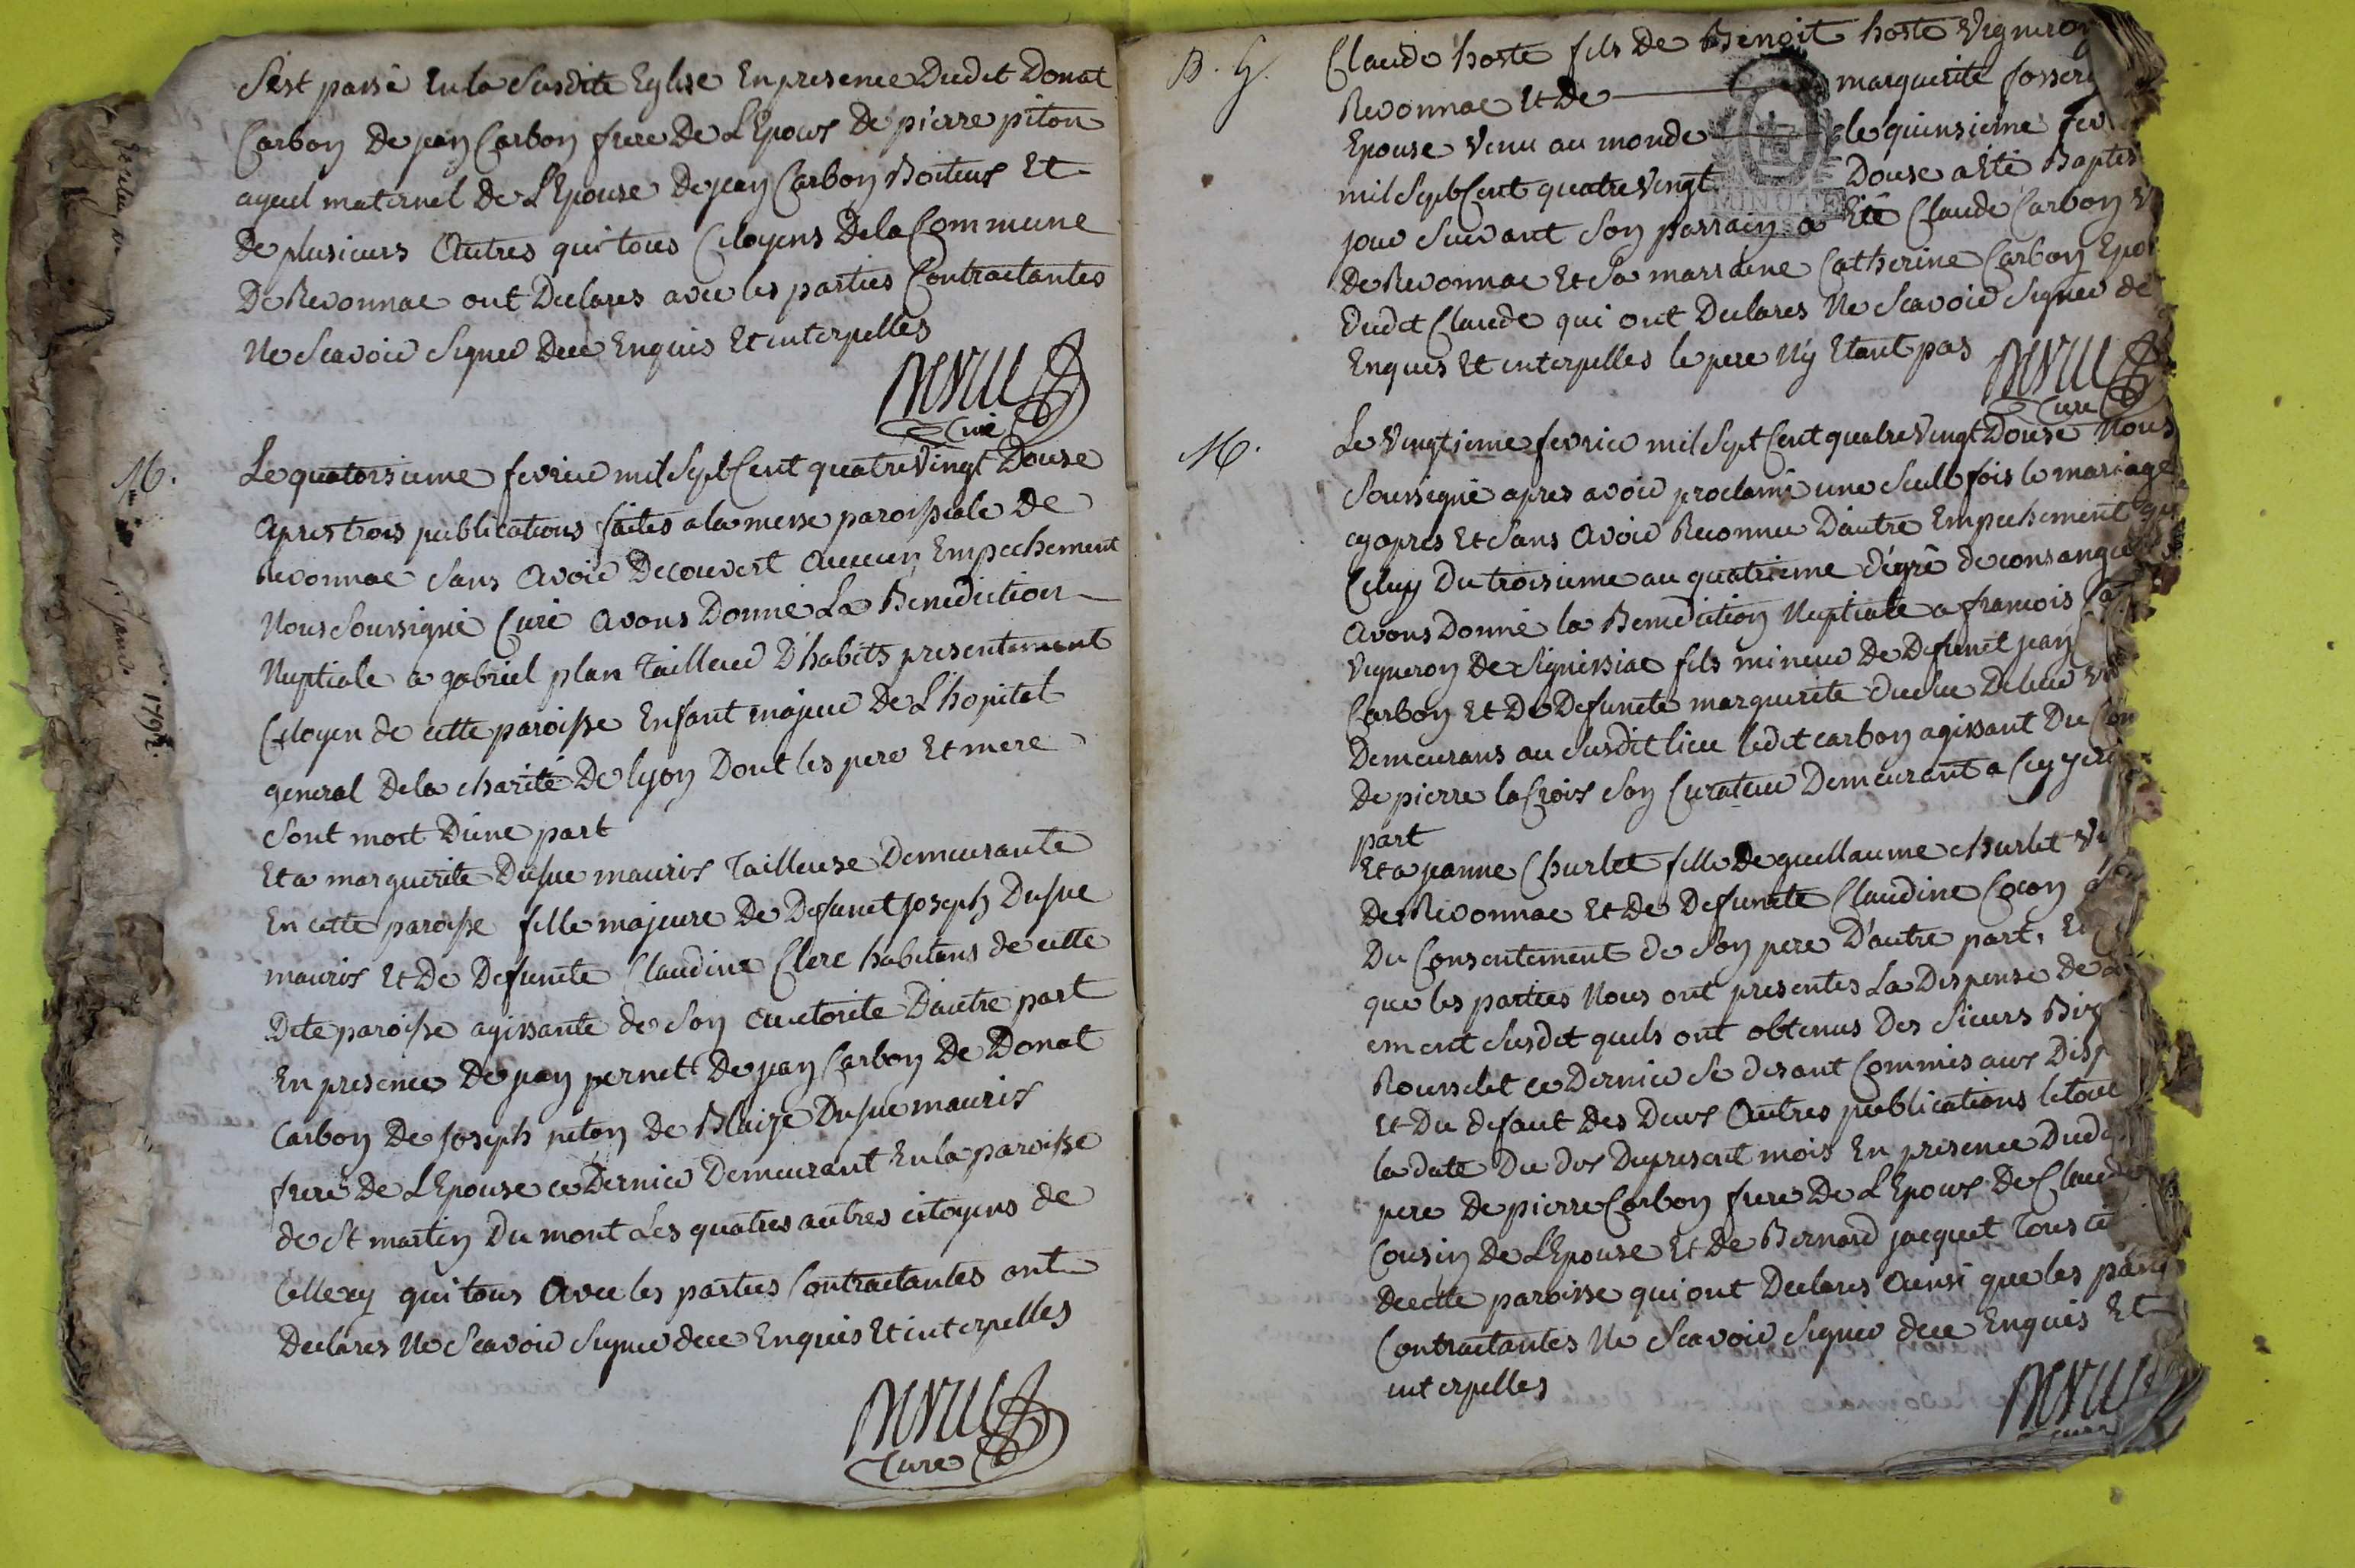 S'est passé En la Susdite Eglise En presence Dudit Donat
Carbon De jean Carbon frere De L'Epoux De pierre piton
ayeul maternel De L'Epouse De jean Carbon Boiteux Et
de plusieurs Autres qui tous Citoyens De la Commune
De Revonnac ont Declares avec les parties Contractantes
Ne Scavoir Signer Dece Enquis Et interpelles
Curé
M.
Le quatorsieme fevrier mil Sept Cent quatre Vingt Douse
Apres trois publications faites a la messe paroissiale De
Revonnac Sans Avoir Decouvert Aucun Empechement
Nous Soussigné Curé Avons Donné La Benediction
Nuptiale a gabriel plan Tailleur D'habits presentement
Citoyen de cette paroisse Enfant majeur De L'hopital
general De la charité De lyon Dont les pere Et mere
Sont mort D'une part
Et a marguerite Dusue mauris Tailleuse Demeurante
En cette paroisse fille majeure De Defunct Joseph Dusue
mauris Et De Defuncte Claudine Clerc habitans de cette
Dite paroisse agissante de Son auctorite D'autre part
En presence De jean pernet De jean Carbon De Donat
Carbon De Joseph piton De Blaize Dusue mauris
frere De L'Epouse ce Dernier Demeurant En la paroisse
de St martin Du mont Les quatres autres citoyens de
Cellexy qui tous Avec les parties Contractantes ont
Declares Ne Scavoir Signer dece Enquis Et interpelles
Cure
1792.
B. G.
Claude hoste fils De Benoit hoste Vigneron
Revonnac Et De marguerite
Epouse Venu au monde le quinsieme
mil Sept Cent quatre Vingt Douse a Eté
MINUTE
jour Suivant Son parrain a Eté Claude Carbon
De Revonnac Et Sa marraine Catherine Carbon
Dudit Claude qui ont Declares Ne Scavoir Signer de
Enquis Et interpelles le pere N'y Etant pas
Cure
M.
Le Vingtieme fevrier mil Sept Cent quatre Vingt Douse Nous
Soussigné apres avoir proclamé une Seulle fois le mariage
cy apres Et Sans Avoir Reconnu D'autre Empechement
Celuy Du troisieme au quatrieme dégré de
Avons Donné la Benediction Nuptiale a francois
Vigneron De Signissiac fils mineur De Defunct jean
Carbon Et De Defuncte marguerite
Demeurans au Susdit lieu ledit carbon agissant Du
De pierre la Crois Son Curateur Demeurant a
part
Et a jeanne Churlet fille De guillaume churlet
De Revonnac Et De Defuncte Claudine Cocon
Du Consentement de Son pere D'autre part,
que les parties Nous ont presentes La Dispense De
ement Susdit quels ont obtenus Des Sieurs
Rousselet ce Dernier Se disant Commis aux
Et Du defaut Des Deux Autres publications le tout
la date Du dix Du present mois En presence
pere De pierre Carbon frere De L'Epoux De Claude
Cousin De L'Epouse Et De Bernard jacquet Tous
De cette paroisse qui ont Declares Ainsi que les
Contractantes Ne Scavoir Signer dece Enquis Et
interpelles